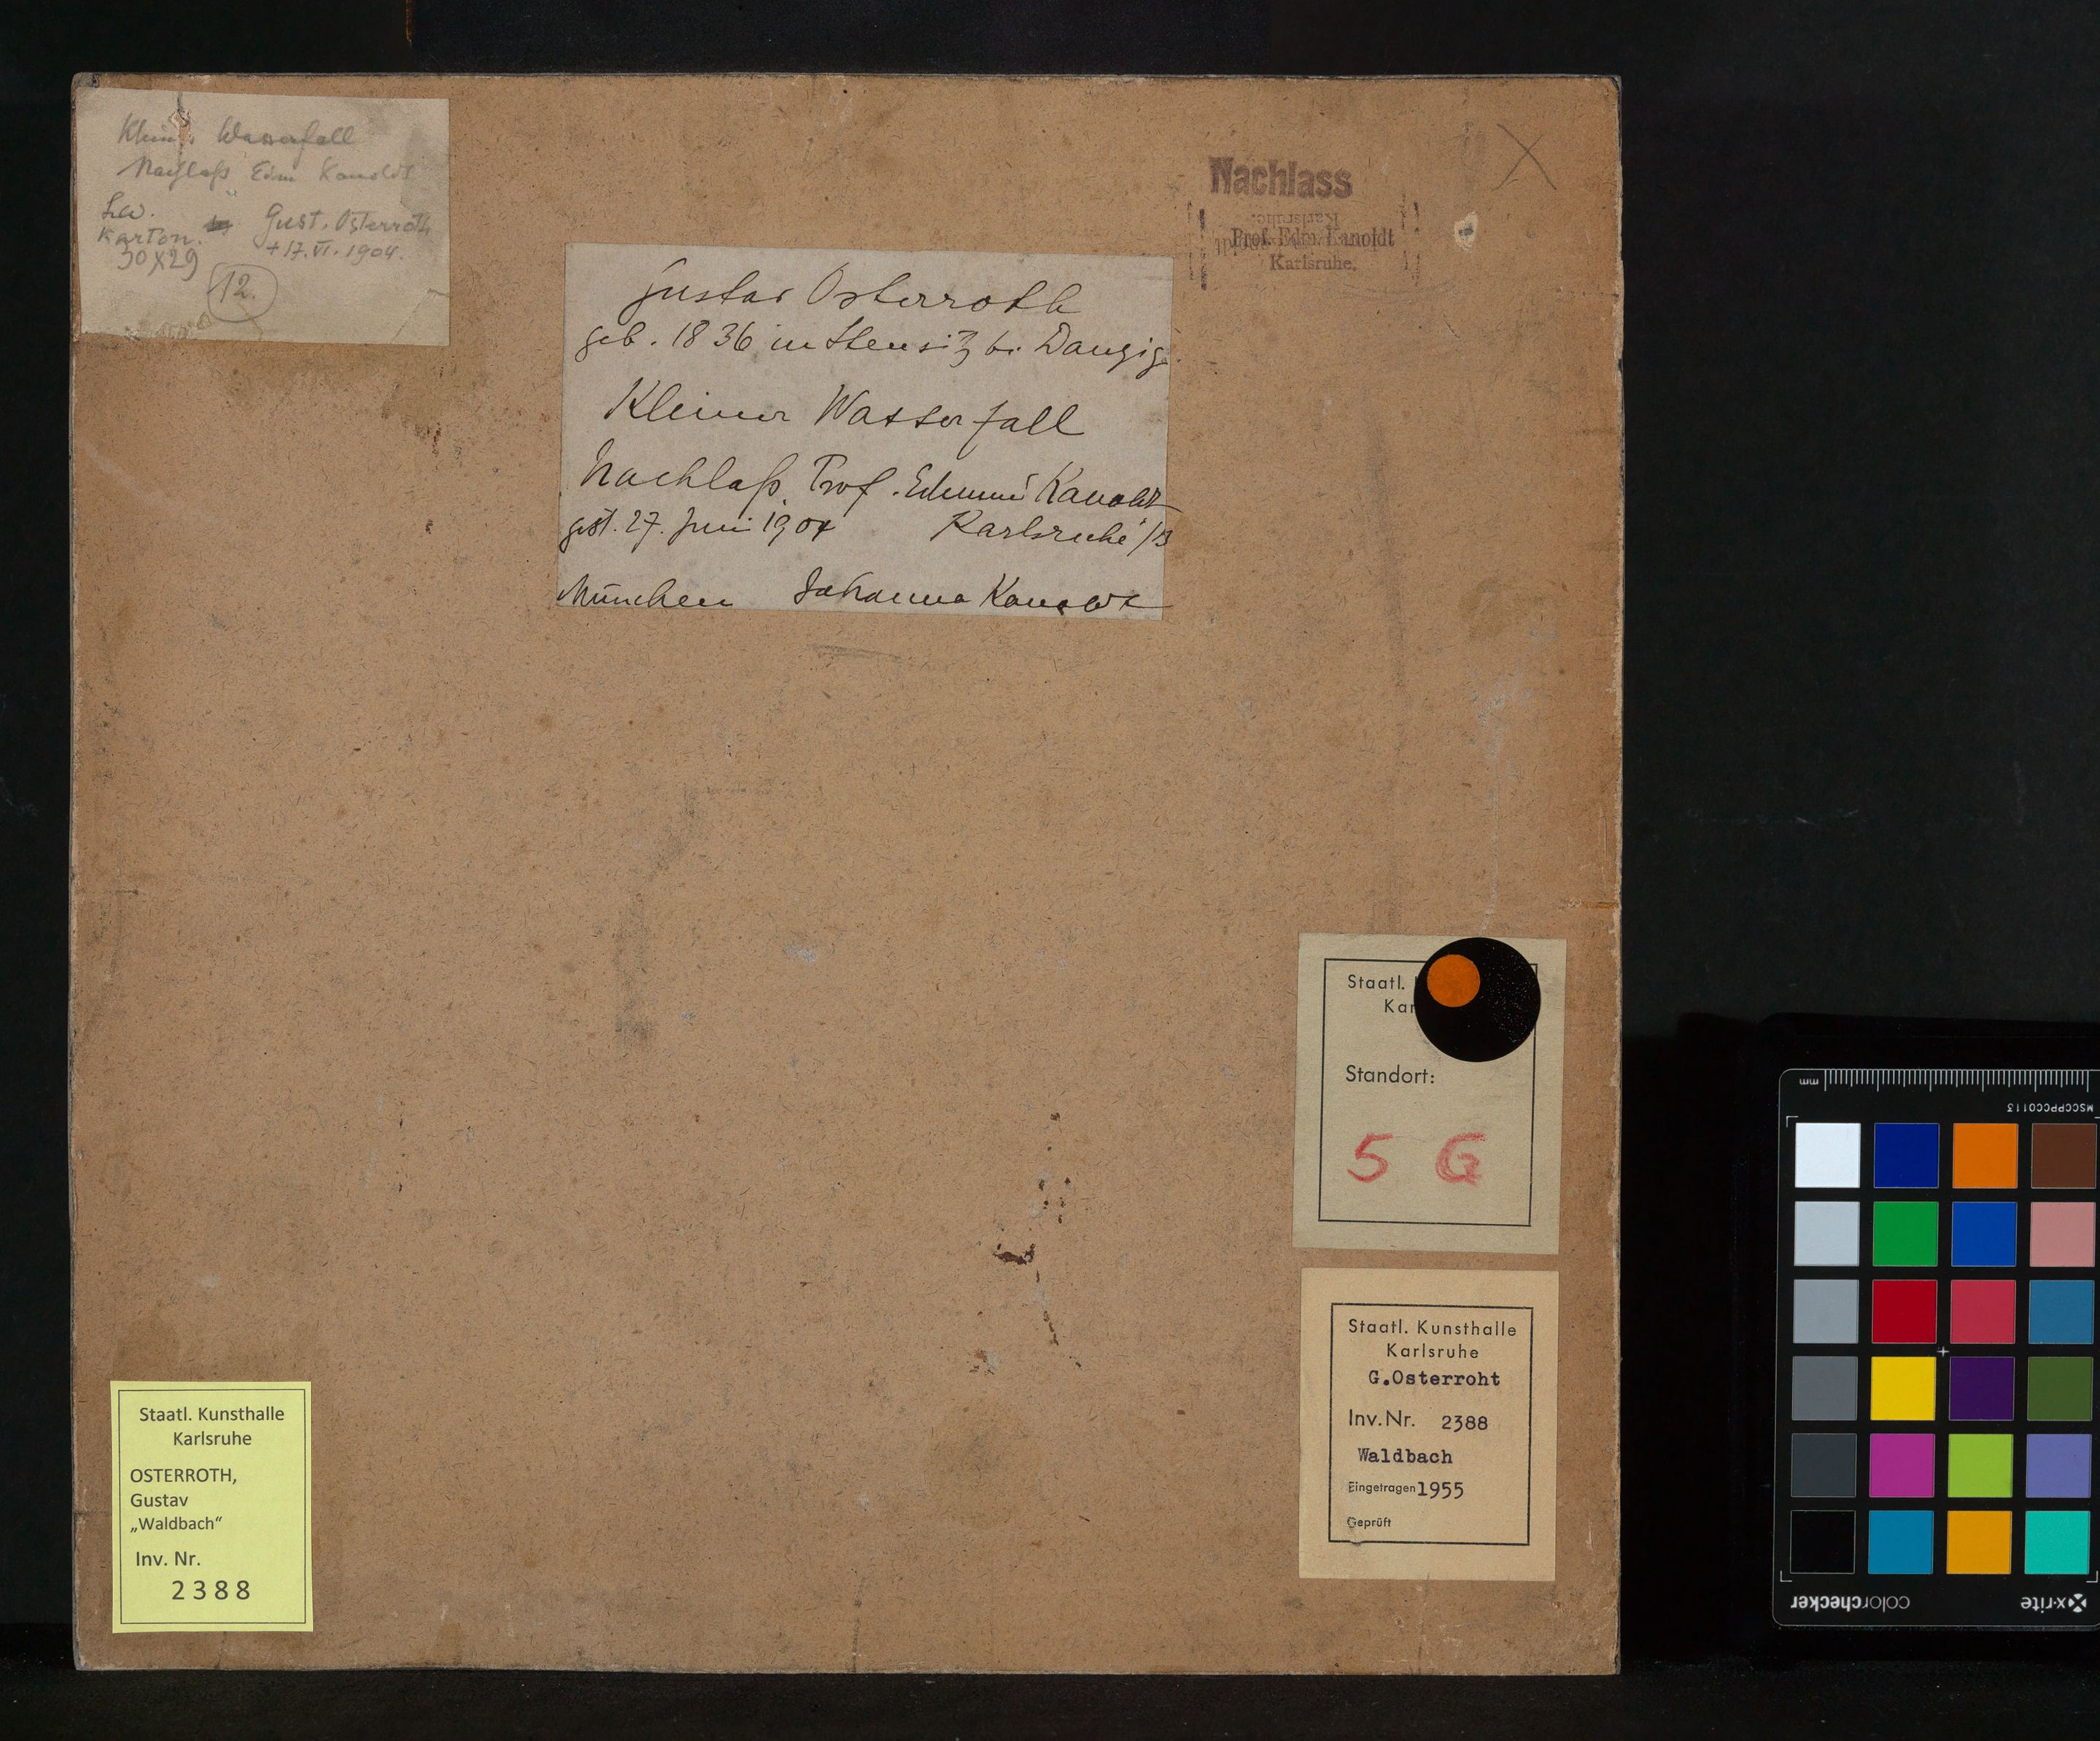 Kleiner Wasserfall
Nachlaß Edm Kanoldt
Lw.
Karton.
30x29
Gust. Osterroth
+ 17. VI. 1904.
12.
Nachlass
Karlsruhe.
Prof. Edm. Kanoldt
Karlsruhe.
Gustav Osterroth
geb. 1836 in Stensitz b. Danzig.
Kleiner Wasserfall
Nachlaß. Prof. Edmund Kanoldt
gest. 27. Juni 1904 Karlsruhe /B
München Johanna Kanoldt
Staatl.
Kar
Standort:
5 G
Staatl. Kunsthalle
Karlsruhe
G.Osterroht
Inv.Nr. 2388
Waldbach
Eingetragen 1955
Geprüft
Staatl. Kunsthalle
Karlsruhe
OSTERROTH,
Gustav
„Waldbach“
Inv. Nr.
2388
mm
MSCCPPCC0113
x-rite
colorchecker